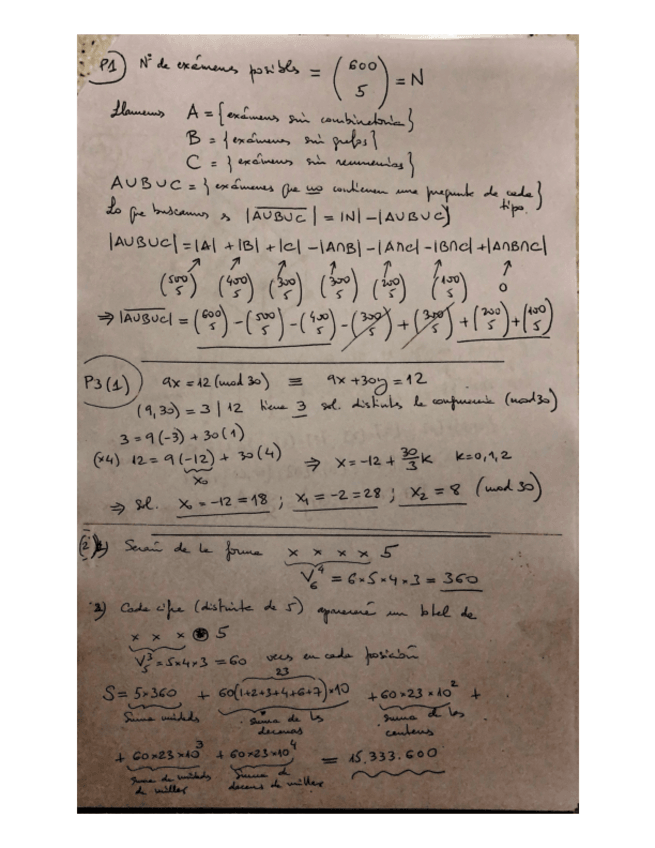 P1) Nº de exámenes posibles = (600 5) = N
Llamemos A = {exámenes sin combinatoria}
B = {exámenes sin grafos}
C = {exámenes sin recurrencias}
A∪B∪C = {exámenes que no contienen una pregunta de cada tipo}
Lo que buscamos es |A∪B∪C| = |N| - |A∪B∪C|
|A∪B∪C| = |A| + |B| + |C| - |A∩B| - |A∩C| - |B∩C| + |A∩B∩C|
(500 5) (400 5) (300 5) (300 5) (200 5) (100 5) 0
⇒ |A∪B∪C| = (600 5) - (500 5) - (400 5) - (300 5) + (300 5) + (200 5) + (100 5)
P3(1)) 9x = 12 (mod 30) ≡ 9x + 30y = 12
(9,30) = 3 | 12 tiene 3 sol. distintas la congruencia (mod 30)
3 = 9(-3) + 30(1)
(x4) 12 = 9(-12) + 30(4) ⇒ x = -12 + 30/3 k k=0,1,2
x₀
⇒ sol. x₀ = -12 = 18 ; x₁ = -2 = 28 ; x₂ = 8 (mod 30)
(2) Serán de la forma x x x x 5
V₆⁴ = 6×5×4×3 = 360
2) Cada cifra (distinta de 5) aparecerá un total de
x x x 5
V₅³ = 5×4×3 = 60 veces en cada posición
23
S = 5×360 + 60(1+2+3+4+6+7)×10 + 60×23×10² +
Suma unidades suma de las decenas suma de las centenas
+ 60×23×10³ + 60×23×10⁴ = 15.333.600
suma de unidades de millar suma de decenas de millar